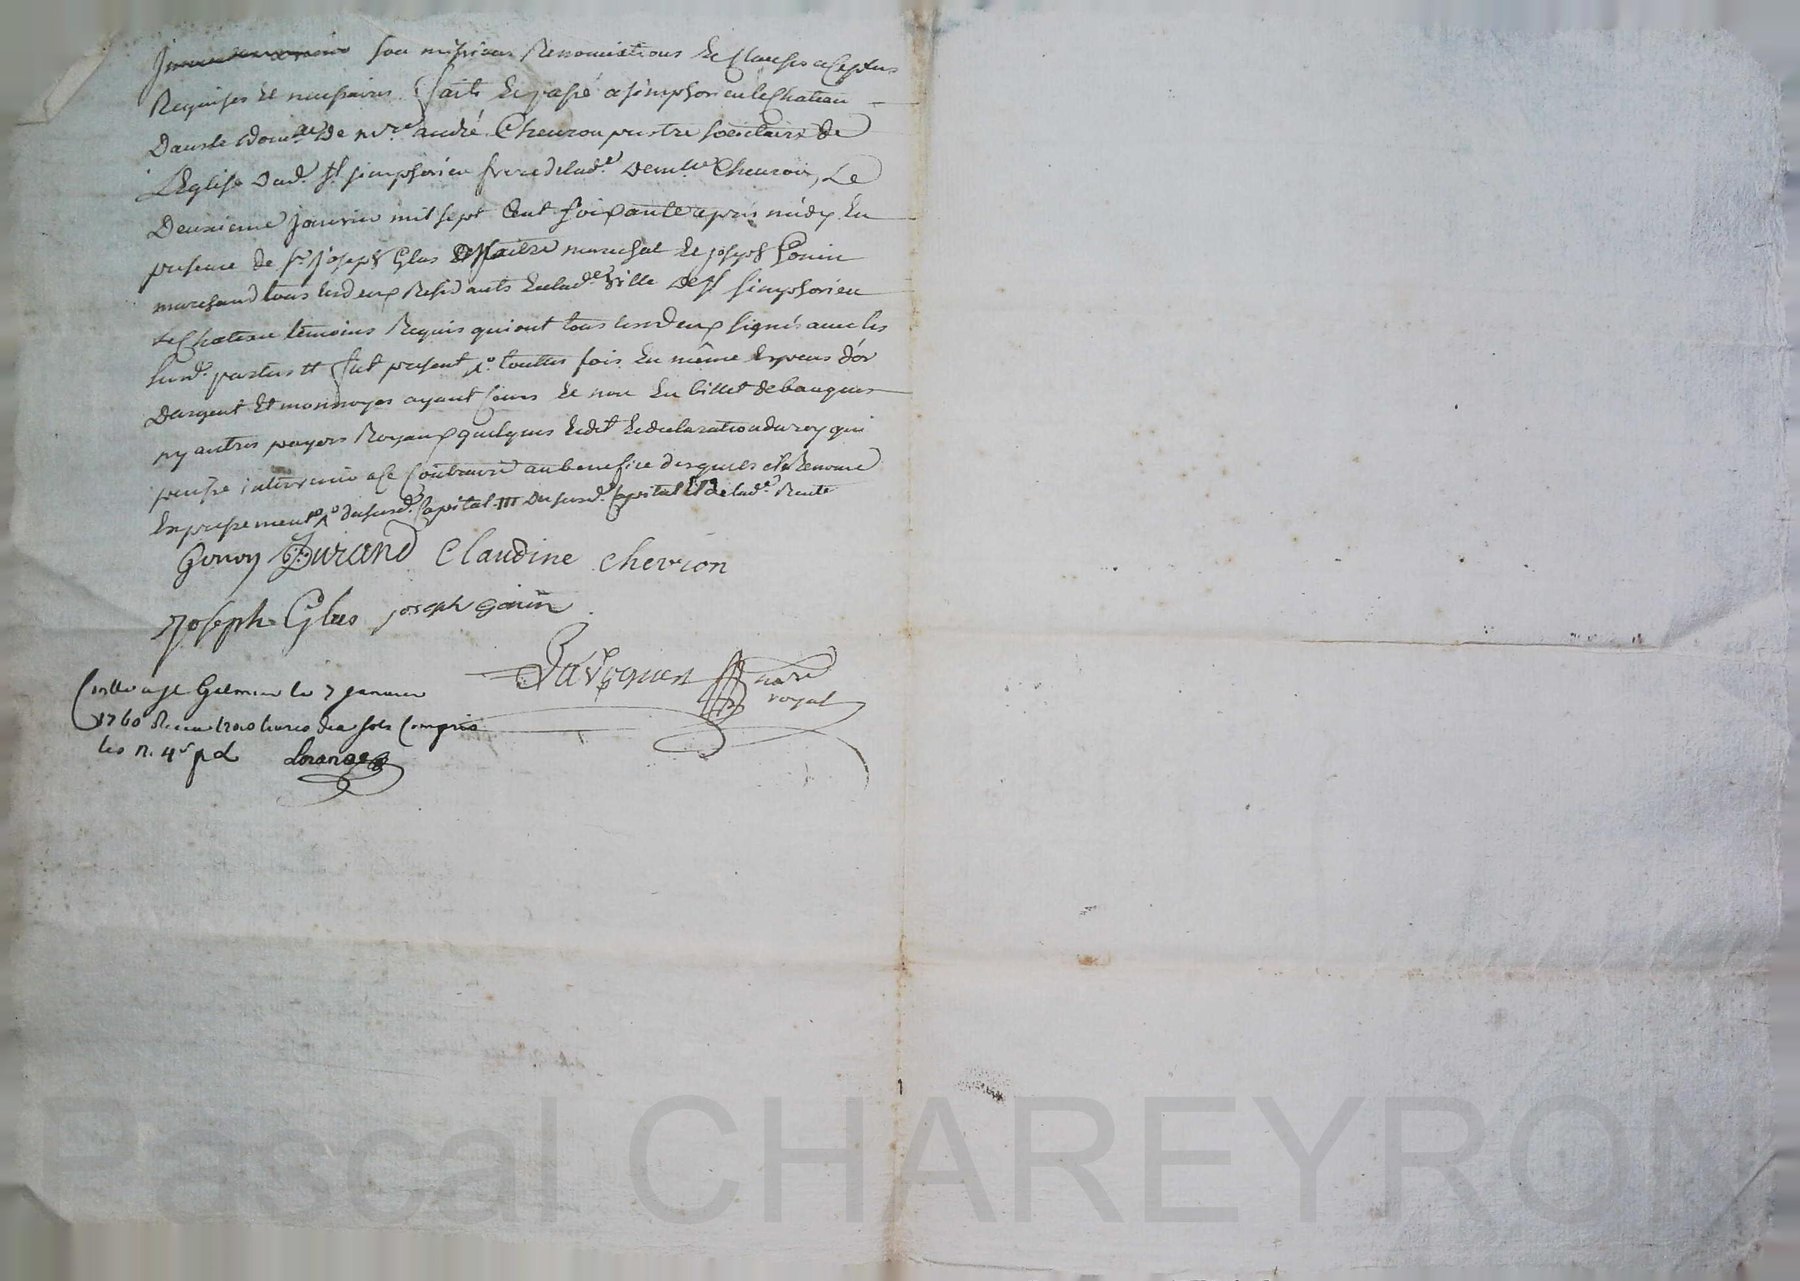 sou mission Renonciations Et Clauses a Ce plus
Requises Et necessaires. fait Et passé a s.t simphorien le Chateau
Dans le dom.le De m.re andré Chevron prestre societaire de
L'Eglise Dud. S.t simphorien frere de lad.e Dem.lle Chevron, Le
Deuxieme janvier mil sept Cent soixante apres midy En
presence de s.r joseph Glas maitre marechal Et joseph Gonin
marchand tous les deux Residants En lad.e ville De S.t simphorien
le Chateau temoins Requis qui ont tous les deux signés avec les
susd. parties fut present p.o touttes fois En même Especes d'or
Dargent Et monnoyes ayant Cours Et non En billet de banques
ny autres papiers Royaux quelques Edit Et declaration du roy qui
puisse intervenir a Ce Contraire au benefice desquels Elle Renonce
Expressement dususd. Capital Du susd. Capital Et de lad.e Rente
Gonon Durand Claudine Chevron
Joseph Glas joseph gonin
nore
royal
Conllé a S.t Galmier le 7 janvier
1760 Receu livres dix sols Compris
les n. 4 s p d
Pascal CHAREYRON